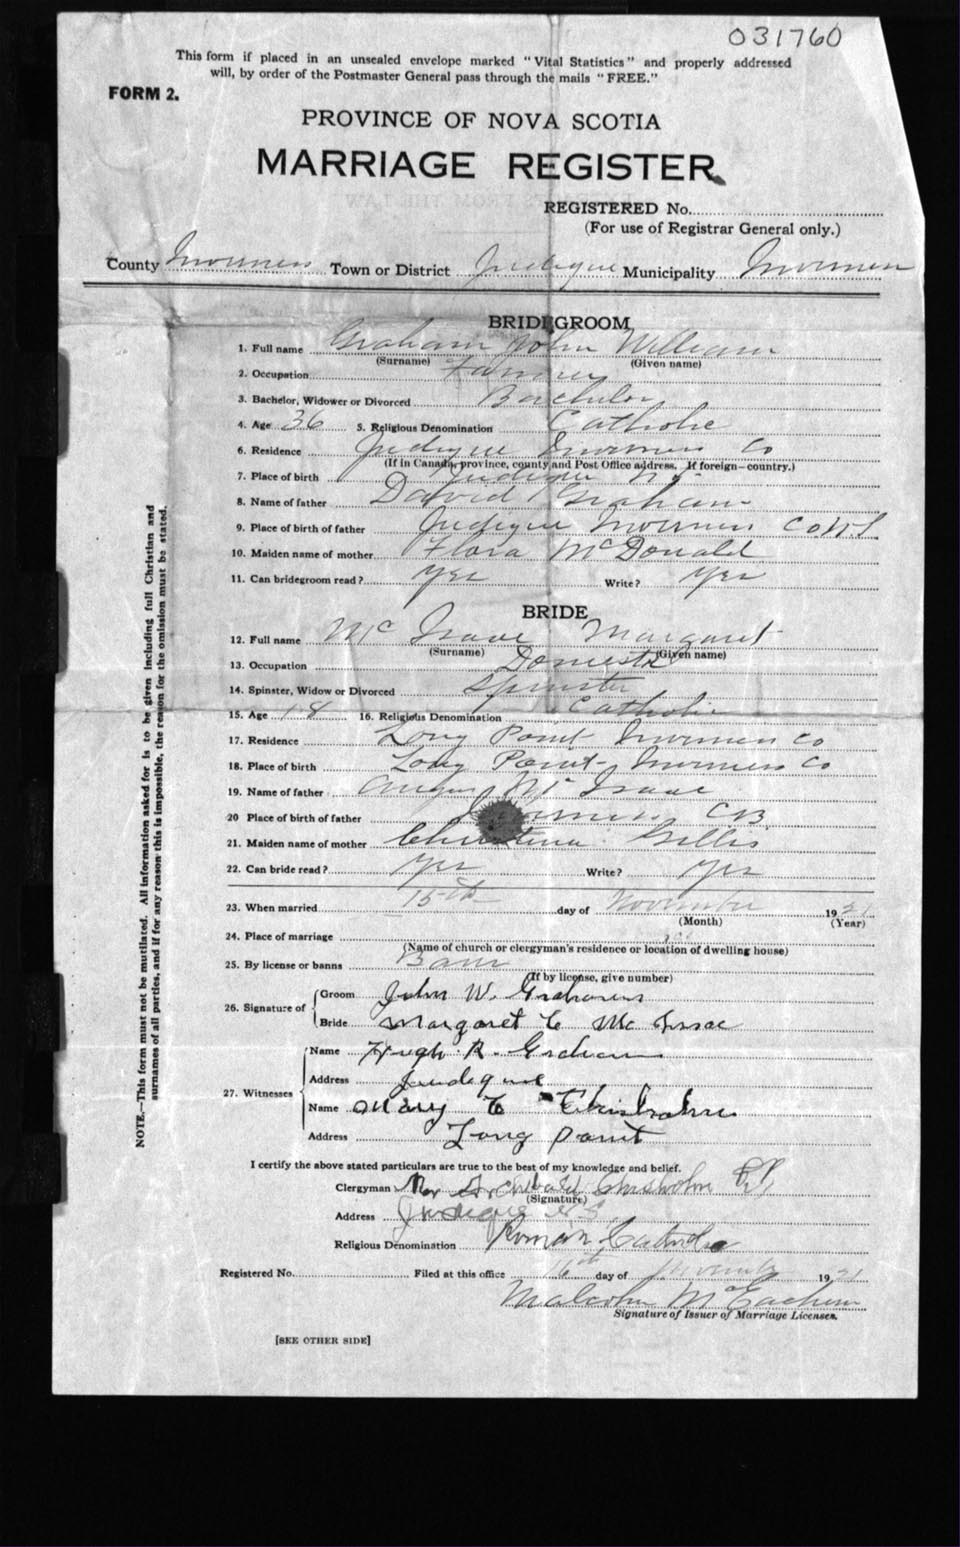 031760
This form if placed in an unsealed envelope marked "Vital Statistics" and properly addressed
will, by order of the Postmaster General pass through the mails "FREE."
FORM 2.
PROVINCE OF NOVA SCOTIA
MARRIAGE REGISTER
REGISTERED No.
(For use of Registrar General only.)
County Inverness Town or District Judique Municipality Inverness
BRIDEGROOM
1. Full name Graham John William
(Surname) (Given name)
2. Occupation Farmer
3. Bachelor, Widower or Divorced Bachelor
4. Age 36 5. Religious Denomination Catholic
6. Residence Judique Inverness Co
(If in Canada, province, county and Post Office address. If foreign—country.)
7. Place of birth Judique N.S.
8. Name of father David Graham
9. Place of birth of father Judique Inverness Co N.S
10. Maiden name of mother Flora McDonald
11. Can bridegroom read? Yes Write? Yes
BRIDE
12. Full name Mc Isaac Margaret
(Surname) (Given name)
13. Occupation Domestic
14. Spinster, Widow or Divorced Spinster
15. Age 18 16. Religious Denomination Catholic
17. Residence Long Point Inverness Co
18. Place of birth Long Point Inverness Co
19. Name of father Angus Mc Isaac
20 Place of birth of father Inverness CB
21. Maiden name of mother Christina Gillis
22. Can bride read? Yes Write? Yes
23. When married 15th day of November 1921
(Month) (Year)
24. Place of marriage
(Name of church or clergyman's residence or location of dwelling house)
25. By license or banns Bann
(If by license, give number)
26. Signature of
Groom John W. Graham
Bride Margaret C Mc Issac
27. Witnesses
Name Hugh R. Graham
Address Judique
Name Mary C Chisholm
Address Long Point
I certify the above stated particulars are true to the best of my knowledge and belief.
Clergyman Archibald Chisholm P.P.
(Signature)
Address Judique N S
Religious Denomination Roman Catholic
Registered No. Filed at this office 16th day of November 1921
Malcolm McEachern
Signature of Issuer of Marriage Licenses.
[SEE OTHER SIDE]
NOTE.—This form must not be mutilated. All information asked for is to be given including full Christian and
surnames of all parties, and if for any reason this is impossible, the reason for the omission must be stated.